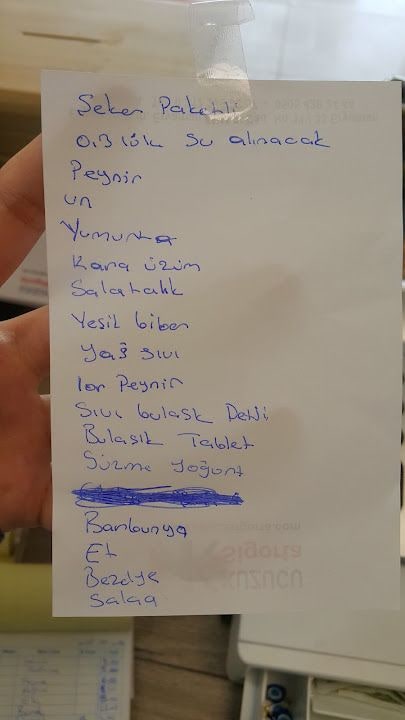 Şeker Paketli
0.3 lük su alınacak
Peynir
un
Yumurta
Kara üzüm
Salatalık
Yeşil biber
Yağ sıvı
lor Peynir
Sıvı bulaşk Detji
Bulaşık Tablet
Süzme Yoğurt
Barbunya
Et
Bezelye
Salça
Sigorta
KUZUCU